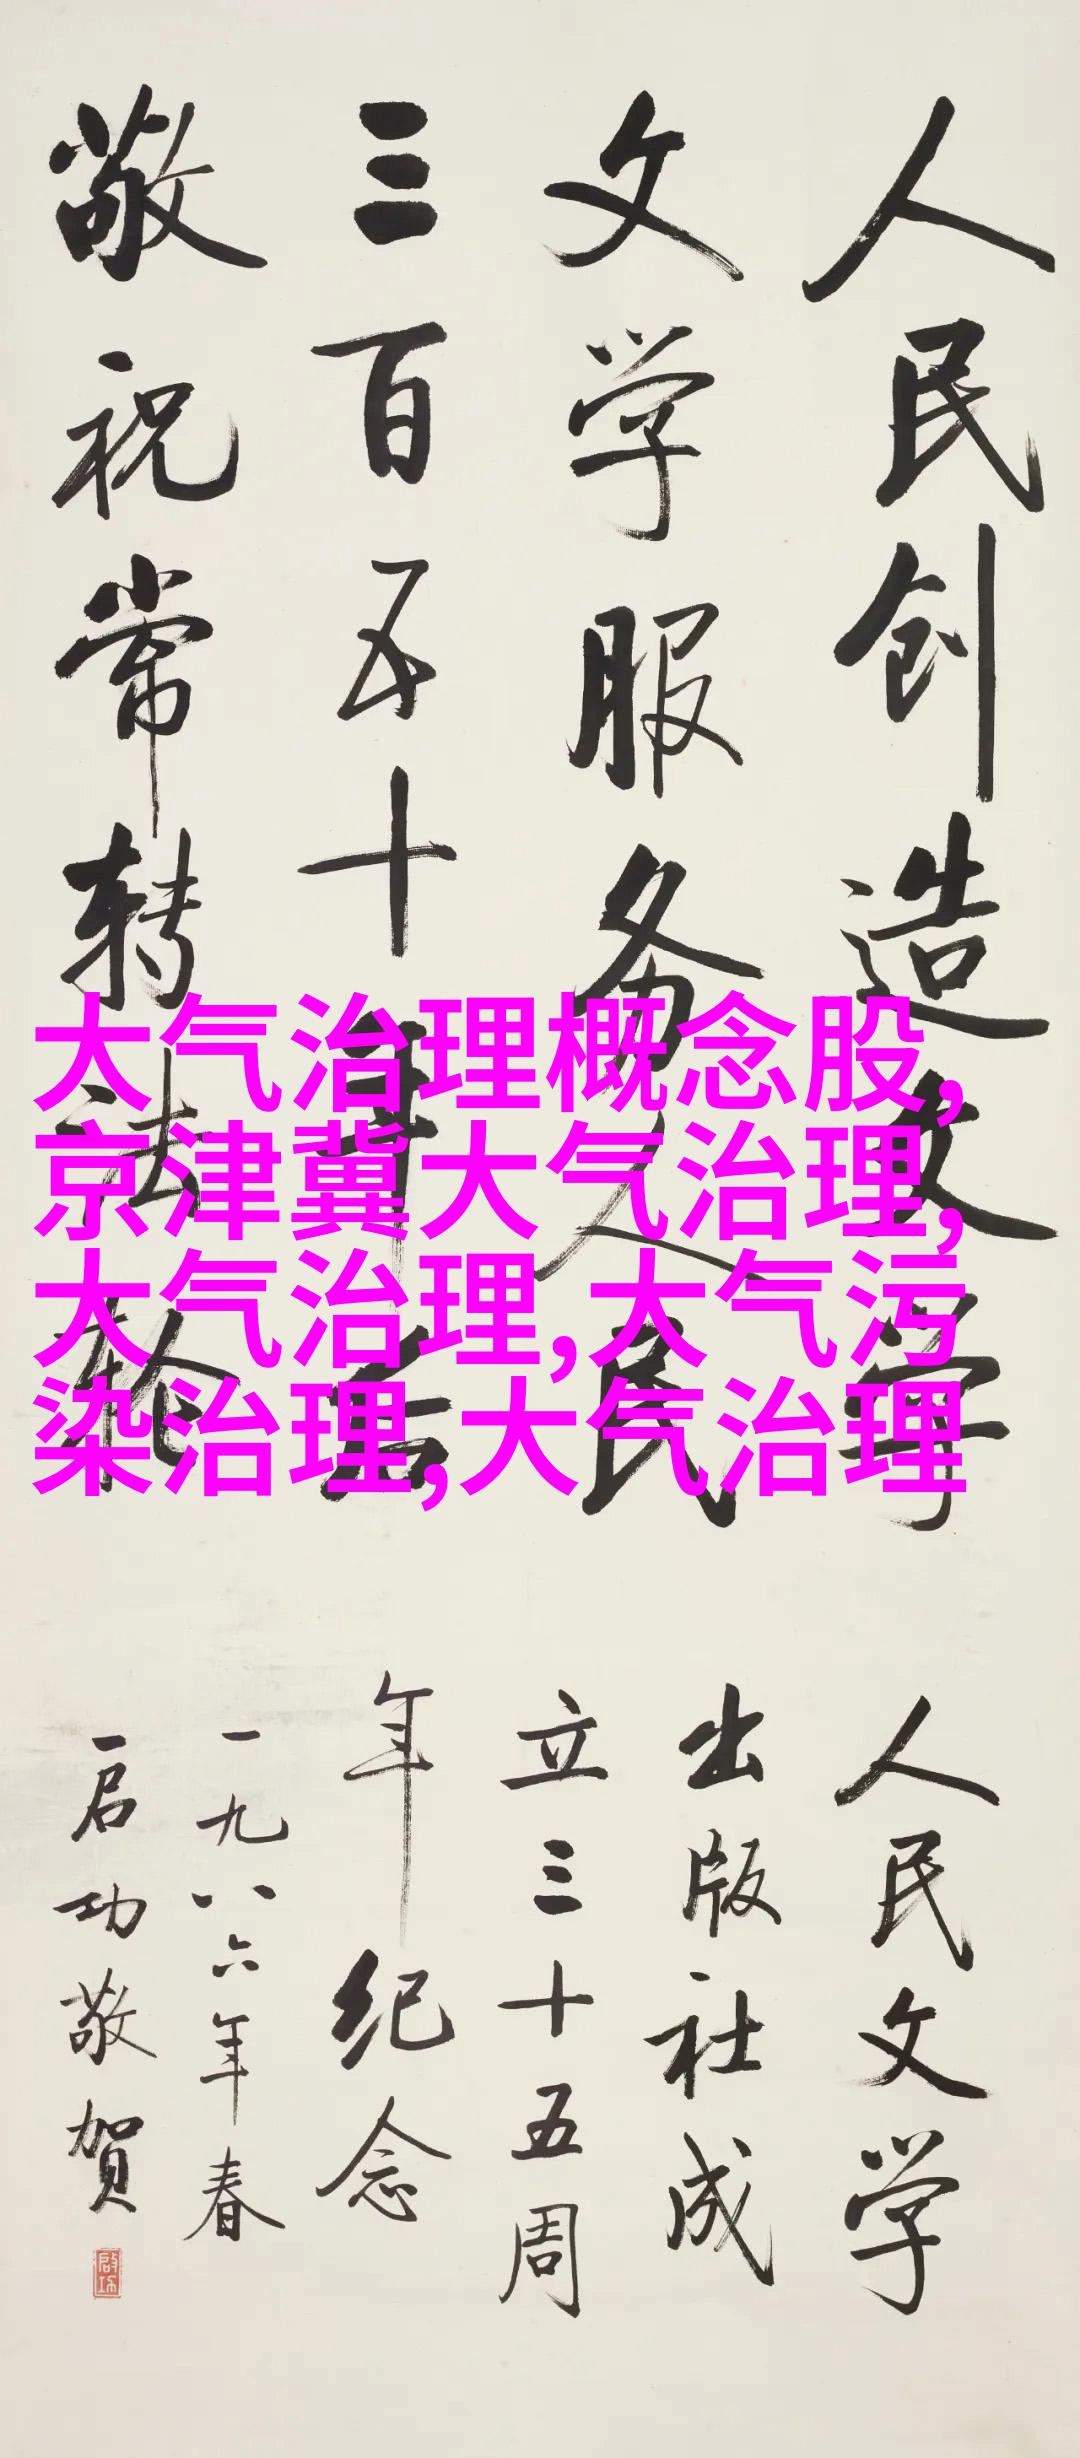 人民创造文学
文学服务人民
三百五十年
敬祝常转法轮
人民文学
出版社成
立三十五周
年纪念
一九八六年春
启功敬贺
启功
大气治理概念股,
京津冀大气治理,
大气治理,大气污
染治理,大气治理